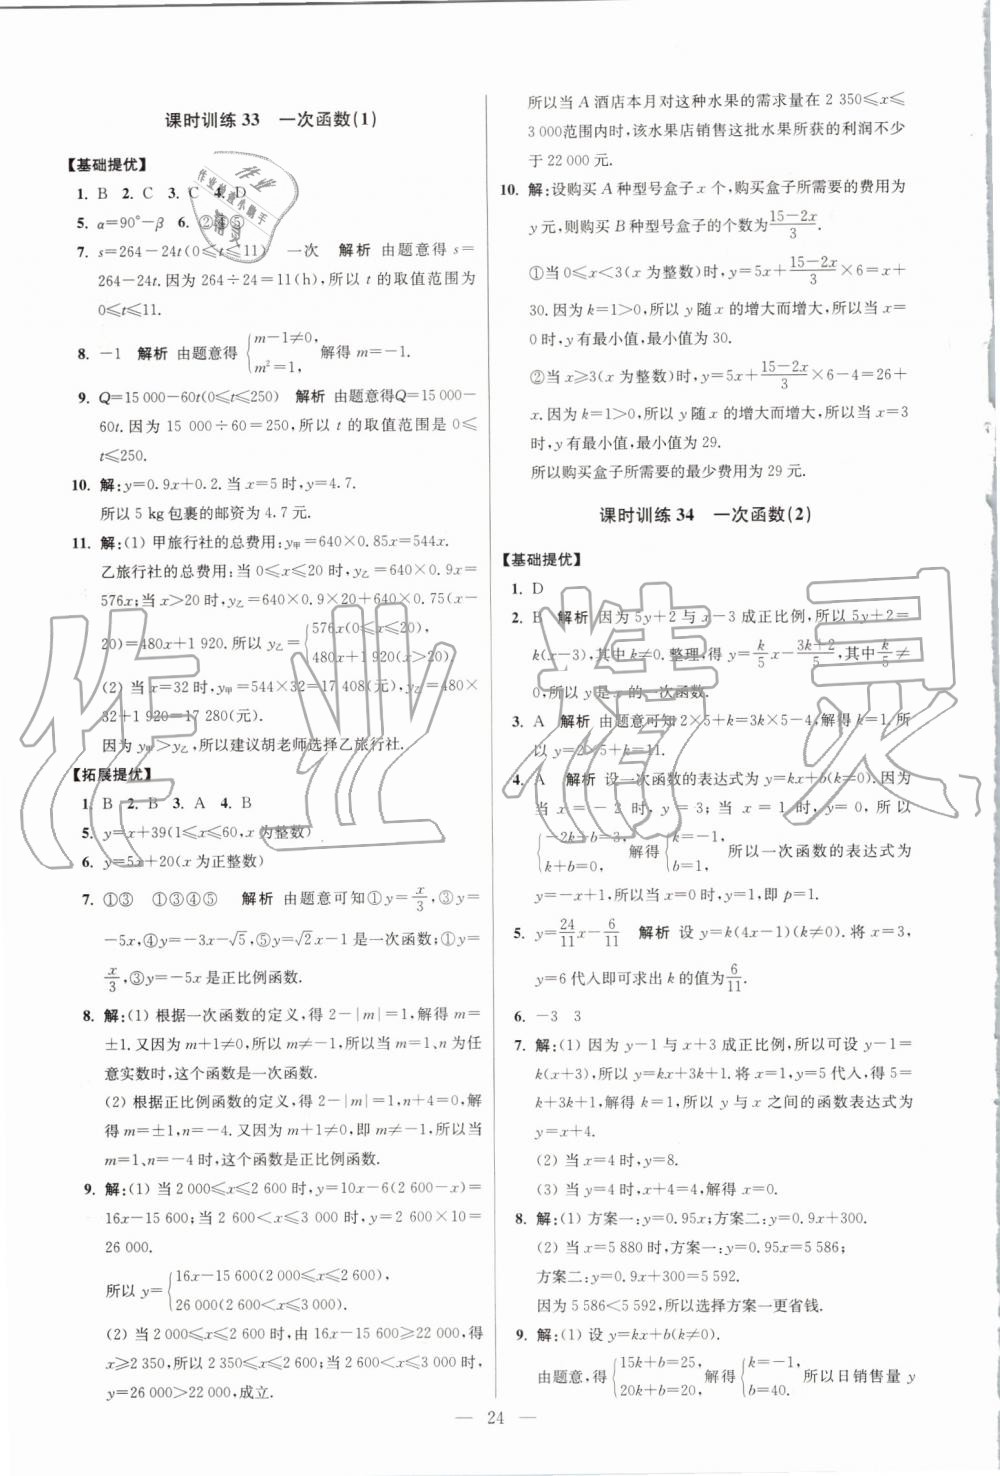 课时训练33 一次函数(1)
【基础提优】
1. B 2. C 3. C 4. D
5. α=90°-β 6. ②④⑤
7. s=264-24t(0≤t≤11) 一次 解析 由题意得 s=
264-24t.因为 264÷24=11(h),所以 t 的取值范围为
0≤t≤11.
8. -1 解析 由题意得{m-1≠0, m²=1, 解得 m=-1.
9. Q=15 000-60t(0≤t≤250) 解析 由题意得Q=15 000-
60t.因为 15 000÷60=250,所以 t 的取值范围是 0≤
t≤250.
10. 解:y=0.9x+0.2.当 x=5 时,y=4.7.
所以 5 kg 包裹的邮资为 4.7 元.
11. 解:(1) 甲旅行社的总费用:y甲=640×0.85x=544x.
乙旅行社的总费用:当 0≤x≤20 时,y乙=640×0.9x=
576x;当 x>20 时,y乙=640×0.9×20+640×0.75(x-
20)=480x+1 920.所以 y乙={576x(0≤x≤20), 480x+1 920(x>20).
(2) 当 x=32 时,y甲=544×32=17 408(元),y乙=480×
32+1 920=17 280(元).
因为 y甲>y乙,所以建议胡老师选择乙旅行社.
【拓展提优】
1. B 2. B 3. A 4. B
5. y=x+39(1≤x≤60,x 为整数)
6. y=5x+20(x 为正整数)
7. ①③ ①③④⑤ 解析 由题意可知①y=x/3,③y=
-5x,④y=-3x-√5,⑤y=√2x-1 是一次函数;①y=
x/3,③y=-5x 是正比例函数.
8. 解:(1) 根据一次函数的定义,得 2-|m|=1,解得 m=
±1.又因为 m+1≠0,所以 m≠-1,所以当 m=1、n 为任
意实数时,这个函数是一次函数.
(2) 根据正比例函数的定义,得 2-|m|=1,n+4=0,解
得 m=±1,n=-4.又因为 m+1≠0,即 m≠-1,所以当
m=1、n=-4 时,这个函数是正比例函数.
9. 解:(1) 当 2 000≤x≤2 600 时,y=10x-6(2 600-x)=
16x-15 600;当 2 600<x≤3 000 时,y=2 600×10=
26 000.
所以 y={16x-15 600(2 000≤x≤2 600), 26 000(2 600<x≤3 000).
(2) 当 2 000≤x≤2 600 时,由 16x-15 600≥22 000,得
x≥2 350,所以 2 350≤x≤2 600;当 2 600<x≤3 000 时,
y=26 000>22 000,成立.
所以当 A 酒店本月对这种水果的需求量在 2 350≤x≤
3 000范围内时,该水果店销售这批水果所获的利润不少
于 22 000 元.
10. 解:设购买 A 种型号盒子 x 个,购买盒子所需要的费用为
y元,则购买 B 种型号盒子的个数为(15-2x)/3.
①当 0≤x<3(x 为整数)时,y=5x+(15-2x)/3×6=x+
30.因为 k=1>0,所以 y 随 x 的增大而增大,所以当 x=
0时,y 有最小值,最小值为 30.
②当 x≥3(x 为整数)时,y=5x+(15-2x)/3×6-4=26+
x.因为 k=1>0,所以 y 随 x 的增大而增大,所以当 x=3
时,y 有最小值,最小值为 29.
所以购买盒子所需要的最少费用为 29 元.
课时训练34 一次函数(2)
【基础提优】
1. D
2. B 解析 因为 5y+2 与 x-3 成正比例,所以 5y+2=
k(x-3),其中 k≠0.整理,得 y=k/5x-(3k+2)/5,其中k/5≠
0,所以 y 是 x 的一次函数.
3. A 解析 由题意可知 2×5+k=3k×5-4,解得 k=1.所
以 y=2×5+k=11.
4. A 解析 设一次函数的表达式为 y=kx+b(k≠0).因为
当 x=-2 时,y=3;当 x=1 时,y=0,所以
{-2k+b=3, k+b=0, 解得{k=-1, b=1, 所以一次函数的表达式为
y=-x+1,所以当 x=0 时,y=1,即 p=1.
5. y=24/11x-6/11 解析 设 y=k(4x-1)(k≠0).将 x=3,
y=6 代入即可求出 k 的值为6/11.
6. -3 3
7. 解:(1) 因为 y-1 与 x+3 成正比例,所以可设 y-1=
k(x+3),所以 y=kx+3k+1.将 x=1,y=5 代入,得 5=
k+3k+1,解得 k=1,所以 y 与 x 之间的函数表达式为
y=x+4.
(2) 当 x=4 时,y=8.
(3) 当 y=4 时,x+4=4,解得 x=0.
8. 解:(1) 方案一:y=0.95x;方案二:y=0.9x+300.
(2) 当 x=5 880 时,方案一:y=0.95x=5 586;
方案二:y=0.9x+300=5 592.
因为 5 586<5 592,所以选择方案一更省钱.
9. 解:(1) 设 y=kx+b(k≠0).
由题意,得{15k+b=25, 20k+b=20, 解得{k=-1, b=40. 所以日销售量 y
— 24 —
作业精灵